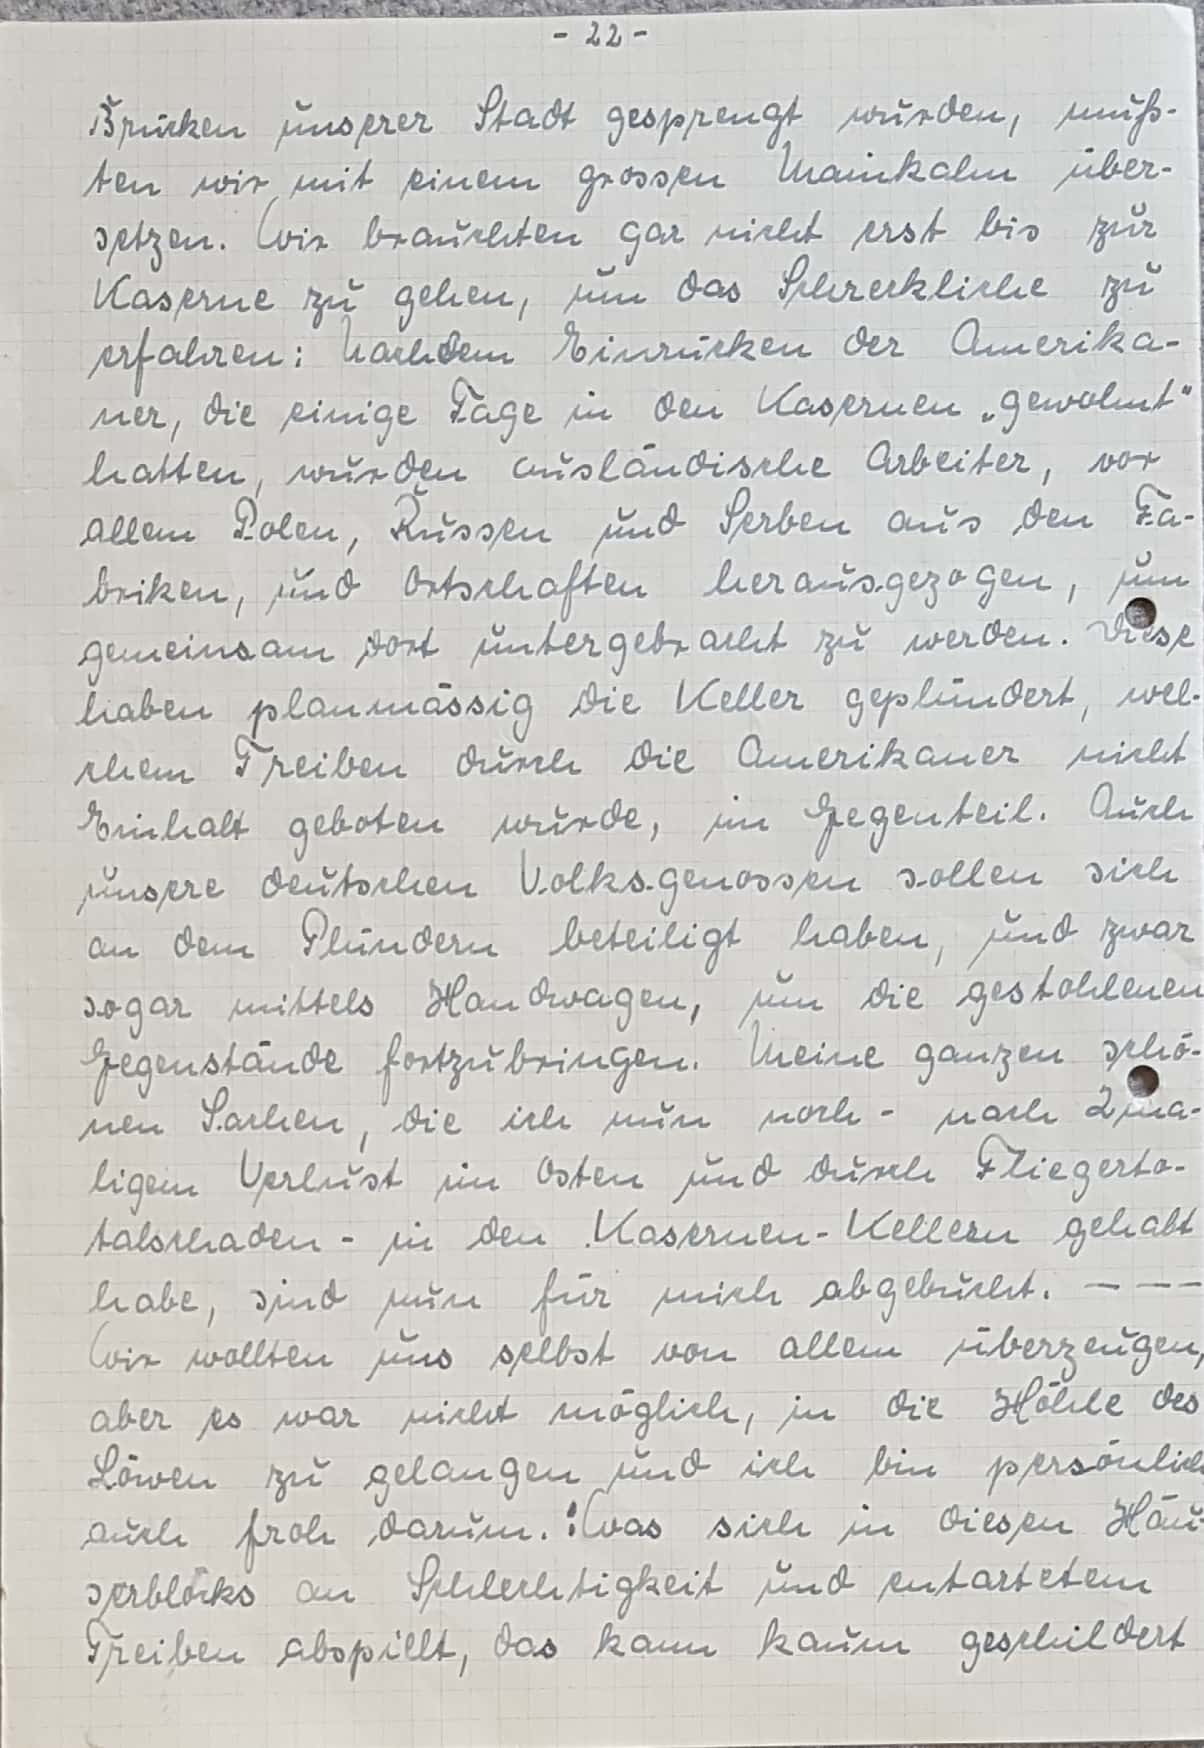 - 22 -
Brücken unserer Stadt gesprengt wurden, muß-
ten wir mit einem grossen Mainkahn über-
setzen. Wir brauchten gar nicht erst bis zur
Kaserne zu gehen, um das Schreckliche zu
erfahren: Nachdem Einrücken der Amerika-
ner, die einige Tage in den Kasernen „gewohnt"
hatten, wurden ausländische Arbeiter, vor
allem Polen, Russen und Serben aus den Fa-
briken, und Ortschaften herausgezogen, um
gemeinsam dort untergebracht zu werden. Diese
haben planmässig die Keller geplündert, wel-
chem Treiben durch die Amerikaner nicht
Einhalt geboten wurde, im Gegenteil. Auch
unsere deutschen Volksgenossen sollen sich
an dem Plündern beteiligt haben, und zwar
sogar mittels Handwagen, um die gestohlenen
Gegenstände fortzubringen. Meine ganzen schö-
nen Sachen, die ich nun noch - nach 2ma-
ligem Verlust im Osten und durch Fliegerto-
talschaden - in den Kasernen-Kellern gehabt
habe, sind nun für mich abgebucht. - - -
Wir wollten uns selbst von allem überzeugen,
aber es war nicht möglich, in die Höhle des
Löwen zu gelangen und ich bin persönlich
auch froh darum.: Was sich in diesen Häu-
serblöcks an Schlechtigkeit und entartetem
Treiben abspielt, das kann kaum geschildert